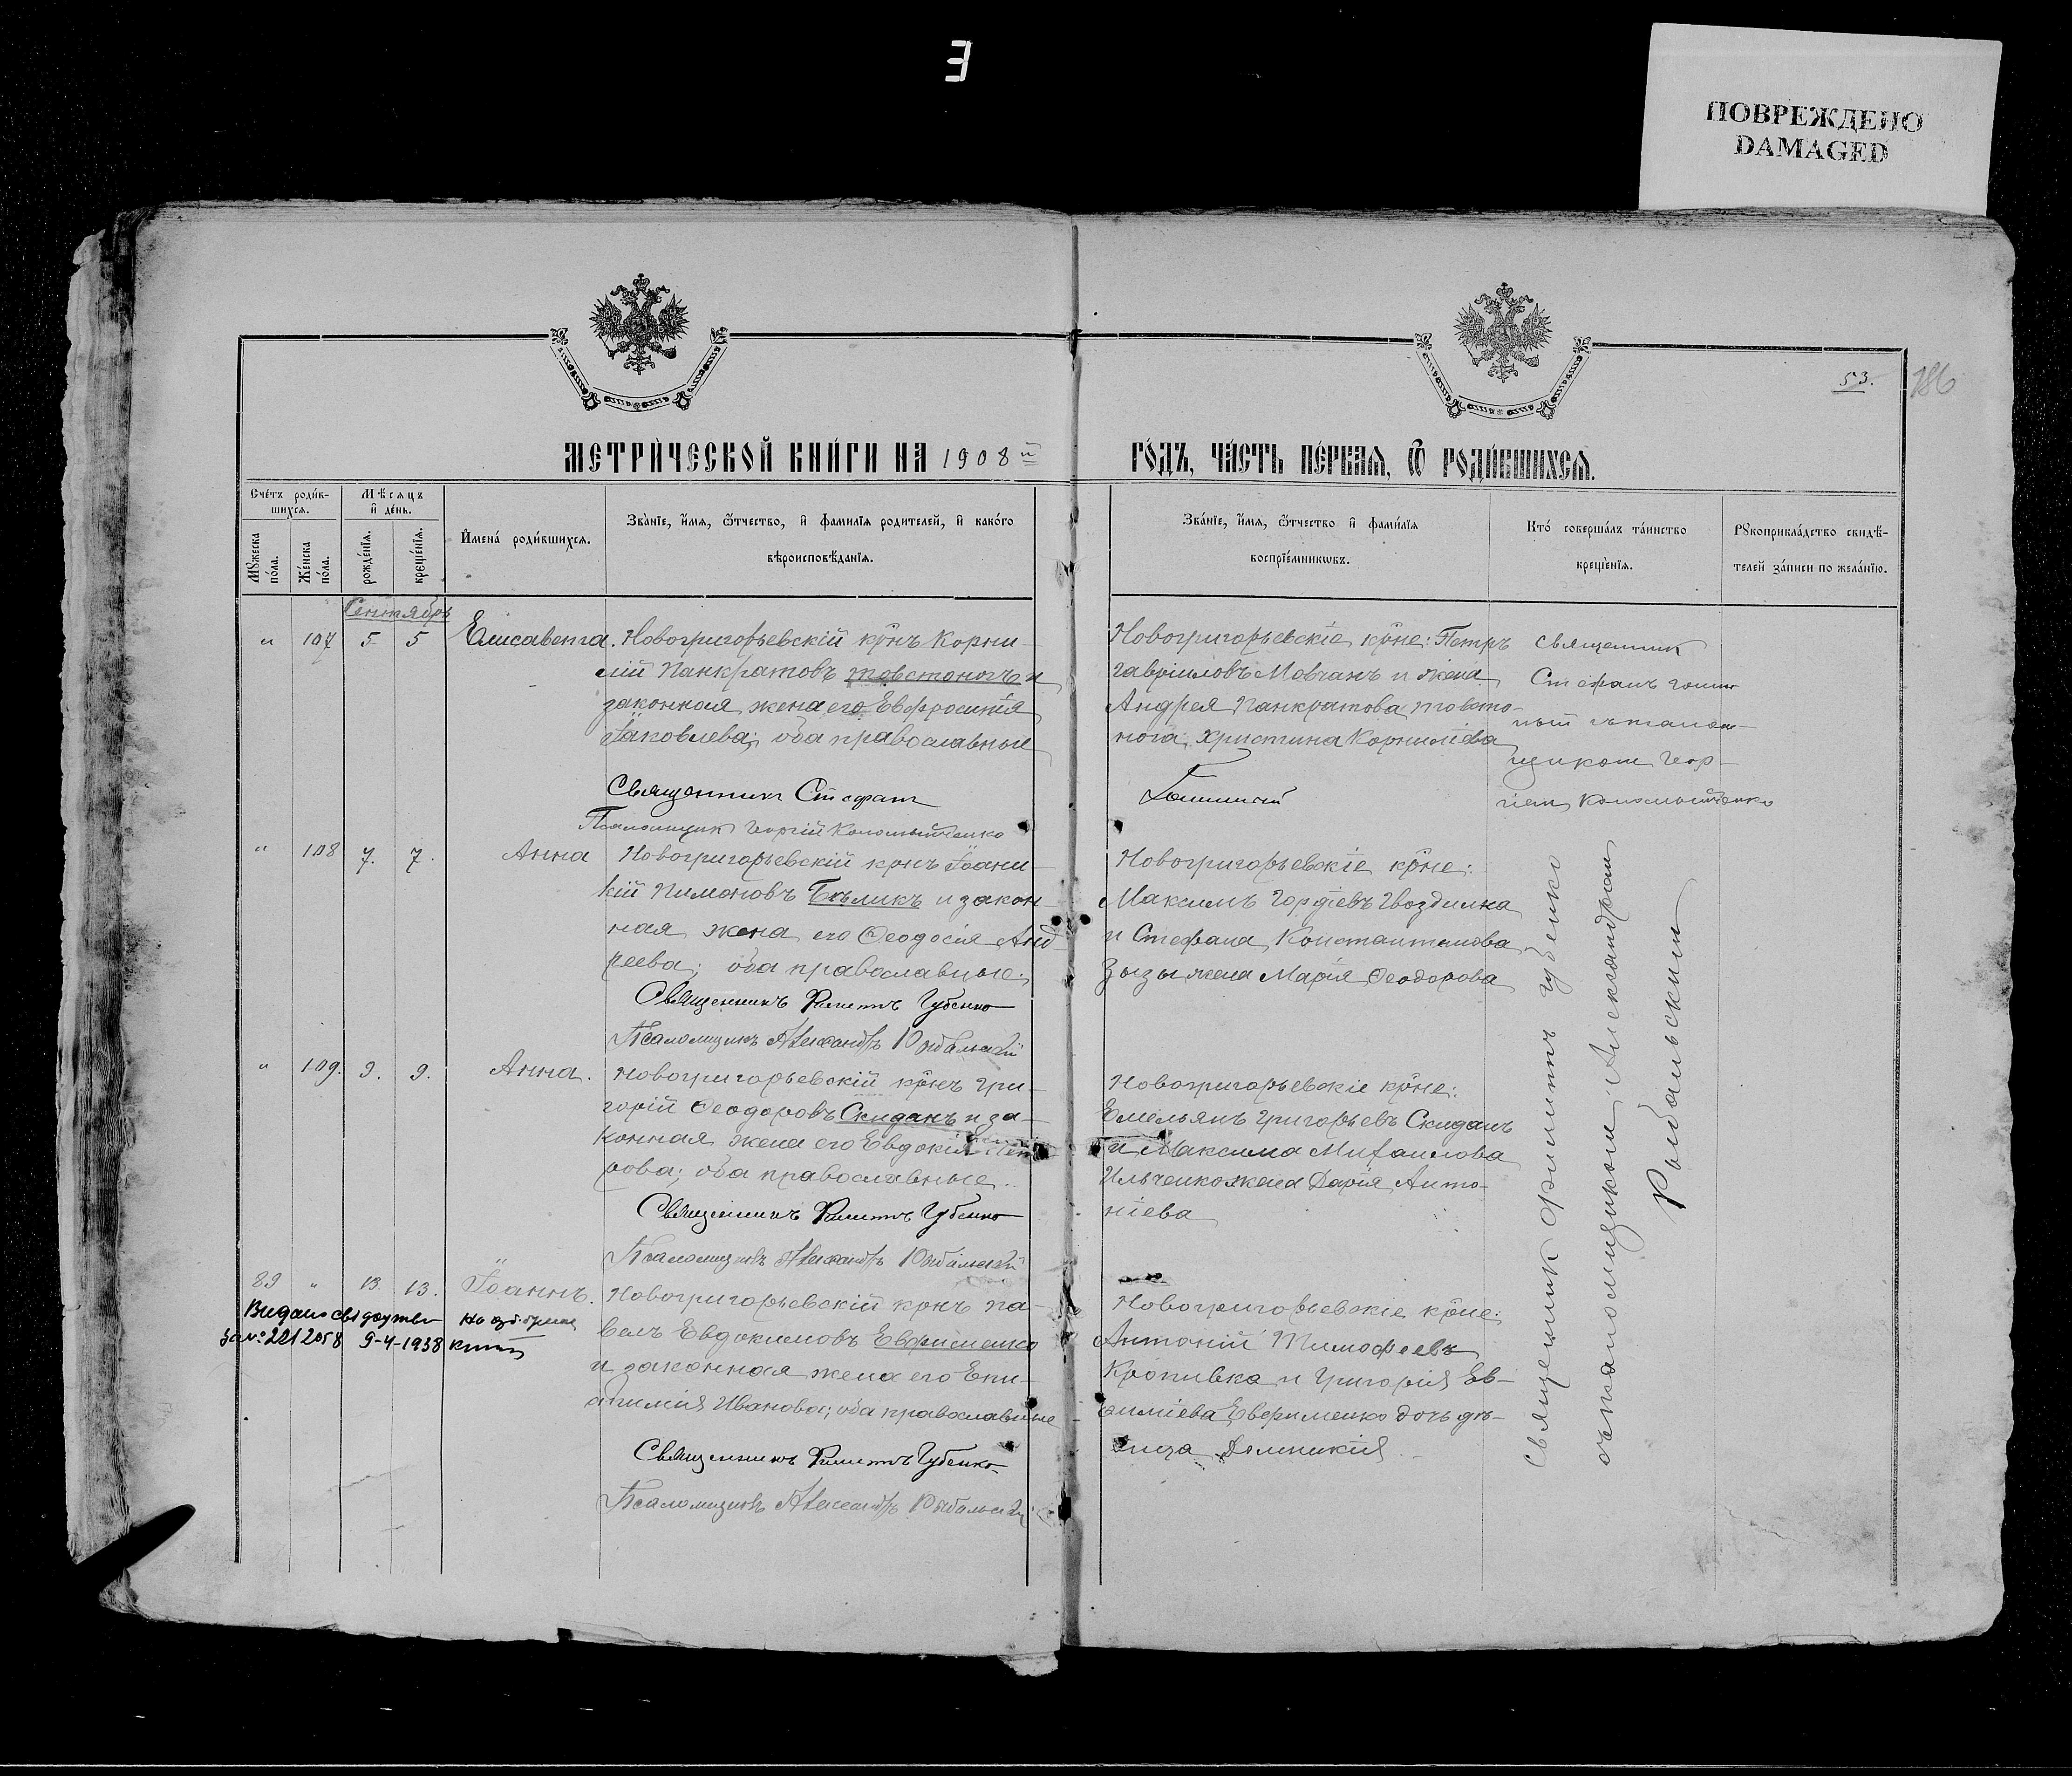 Е
ПОВРЕЖДЕНО
DAMAGED
53.
186
МЕТРИ́ЧЕСКОЙ КНИ́ГИ НА 1908 й
ГО́ДЪ, ЧА́СТЬ ПЕ́РВАѦ, Ѿ РОДИ́ВШИХСѦ.
Сче́тъ роди́в-
шихсѧ.
Мѣсѧцъ
и̂ де́нь.
Мꙋжеска по́ла.
Же́нска по́ла.
рожде́нїѧ.
креще́нїѧ.
И̂мена́ роди́вшихсѧ.
Зва́нїе, и́мѧ, ѻ҆́тчество, и̂ фамилїѧ родителей, и̂ како́го
вѣроисповѣ́данїѧ.
Зва́нїе, и́мѧ, ѻ҆́тчество и̂ фами́лїѧ
воспрїе́мникѡвъ.
Кто́ соверша́лъ та́инство
креще́нїѧ.
Рꙋкоприкла́дство свидѣ́-
телей за́писи по жела́нїю.
Сентябрь
" 107 5 5 Елисавета.
Новогригорьевскій крнъ Корни-
лій Панкратовъ Товстоногъ и
законная жена его Евфросинія
Іаковлева; оба православные
Священникъ Стефан
Псаломщик Георгій Коломыйченко
Новогригорьевскіе крне: Петръ
Гавріиловъ Мовчанъ и жена
Андрея Панкратова Товсто-
нога, Христина Корниліева
священник
Стефанъ
щиком Геор-
гіем Коломыйченко
" 108 7. 7. Анна
Новогригорьевскій крнъ Іоанни-
кій Пимоновъ Бѣликъ и закон-
ная жена его Ѳеодосія Анд
реева; оба православные.
Священникъ Филиппъ Губенко
Псаломщикъ Александръ Рыбальскій
Новогригорьевскіе крне:
Максимъ Гордіевъ Гвоздилка
и Стефана Константинова
Зызы жена Марія Ѳеодорова
" 109. 9. 9. Анна.
Новогригорьевскій крнъ Гри-
горій Ѳеодоровъ Скиданъ и за-
конная жена его Евдокія Пет
рова; оба православные.
Священникъ Филиппъ Губенко
Псаломщикъ Александръ Рыбальскій
Новогригорьевскіе крне:
Емельянъ Григорьевъ Скиданъ
и Максима Михаилова
Ильченко жена Дарія Анто-
ніева
89 " 13. 13. Іоаннъ.
Видано свідоцтво
за № 2212058 9-4-1938
Новогригорьевскій крнъ Па-
велъ Евдокимовъ Евфименко
и законная жена его Епи-
Иванова; оба православные
Священникъ Филиппъ Губенко
Псаломщикъ Александръ Рыбальскій
Новогригорьевскіе крне:
Антоній Тимофеевъ
Кропивка и Григорія Ев-
ѳиміева Евфименко дочь дѣ-
вица Домникія
Священник Филиппъ Губенко
съ псаломщиком Александром
Рыбальским